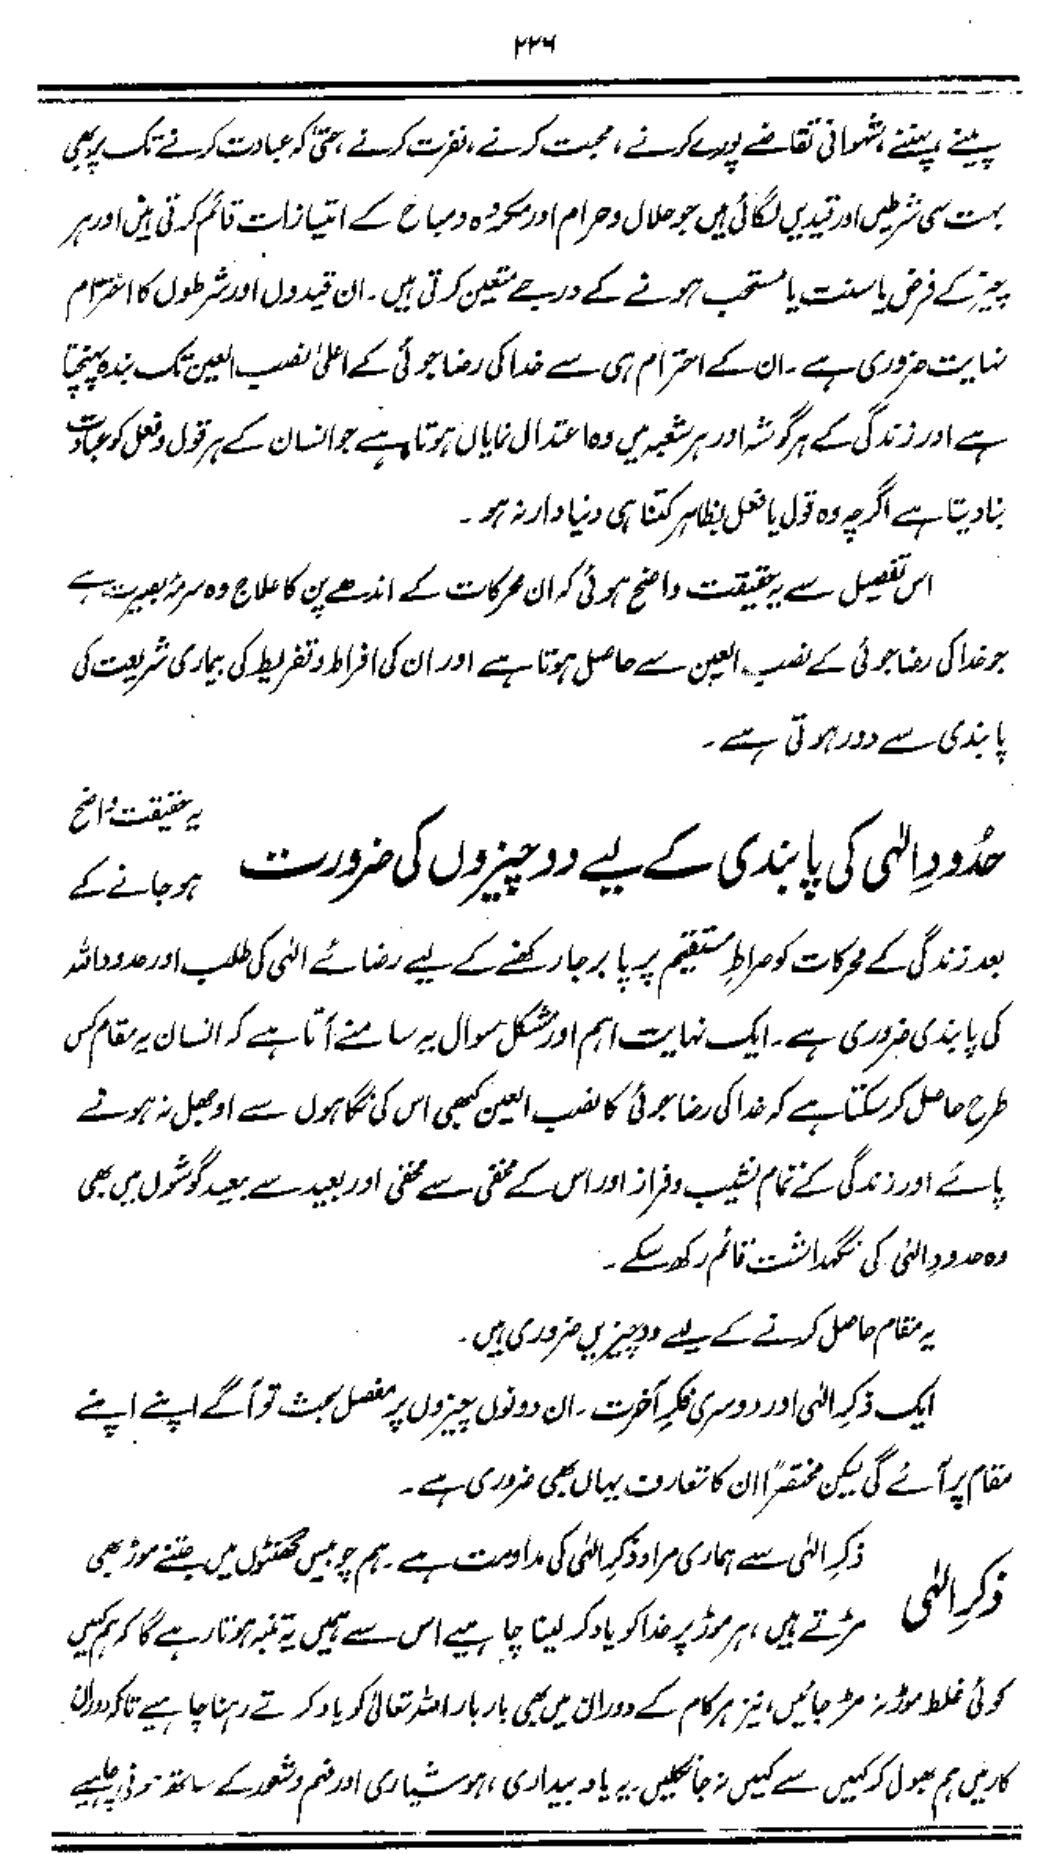 ۲۲۶
پینے، پہننے، شہوانی تقاضے پورے کرنے، محبت کرنے، نفرت کرنے، حتیٰ کہ عبادت کرنے تک پر بھی
بہت سی شرطیں اور قیدیں لگائی ہیں جو حلال و حرام اور مکروہ و مباح کے امتیازات قائم کرتی ہیں اور ہر
چیز کے فرض یا سنت یا مستحب ہونے کے درجے متعین کرتی ہیں۔ ان قیدوں اور شرطوں کا احترام
نہایت ضروری ہے۔ ان کے احترام ہی سے خدا کی رضا جوئی کے اعلیٰ نصب العین تک بندہ پہنچتا
ہے اور زندگی کے ہر گوشہ اور ہر شعبہ میں وہ اعتدال نمایاں ہوتا ہے جو انسان کے ہر قول و فعل کو عبادت
بنا دیتا ہے اگرچہ وہ قول یا فعل بظاہر کتنا ہی دنیا دارانہ ہو۔
اس تفصیل سے یہ حقیقت واضح ہوئی کہ ان محرکات کے اندھے پن کا علاج وہ سرمۂ بصیرت ہے
جو خدا کی رضا جوئی کے نصب العین سے حاصل ہوتا ہے اور ان کی افراط و تفریط کی بیماری شریعت کی
پابندی سے دور ہوتی ہے۔
حُدودِ الٰہی کی پابندی کے لیے دو چیزوں کی ضرورت
یہ حقیقت واضح
ہو جانے کے
بعد زندگی کے محرکات کو صراطِ مستقیم پر پا برجا رکھنے کے لیے رضائے الٰہی کی طلب اور حدود اللہ
کی پابندی ضروری ہے۔ ایک نہایت اہم اور مشکل سوال یہ سامنے آتا ہے کہ انسان یہ مقام کس
طرح حاصل کر سکتا ہے کہ خدا کی رضا جوئی کا نصب العین کبھی اس کی نگاہوں سے اوجھل نہ ہونے
پائے اور زندگی کے تمام نشیب و فراز اور اس کے مخفی سے مخفی اور بعید سے بعید گوشوں میں بھی
وہ حدودِ الٰہی کی نگہداشت قائم رکھ سکے۔
یہ مقام حاصل کرنے کے لیے دو چیزیں ضروری ہیں۔
ایک ذکرِ الٰہی اور دوسری فکرِ آخرت۔ ان دونوں چیزوں پر مفصل بحث تو آگے اپنے اپنے
مقام پر آئے گی لیکن مختصراً ان کا تعارف یہاں بھی ضروری ہے۔
ذکرِ الٰہی
ذکرِ الٰہی سے ہماری مراد ذکرِ الٰہی کی مداومت ہے۔ ہم چوبیس گھنٹوں میں جتنے موڑ بھی
مڑتے ہیں، ہر موڑ پر خدا کو یاد کر لینا چاہیے اس سے ہمیں یہ تنبہ ہوتا رہے گا کہ ہم کہیں
کوئی غلط موڑ نہ مڑ جائیں، نیز ہر کام کے دوران میں بھی بار بار اللہ تعالیٰ کو یاد کرتے رہنا چاہیے تاکہ دوران
کار میں ہم بھول کر کہیں سے کہیں نہ جا نکلیں۔ یہ یاد بیداری، ہوشیاری اور فہم و شعور کے ساتھ ہونی چاہیے